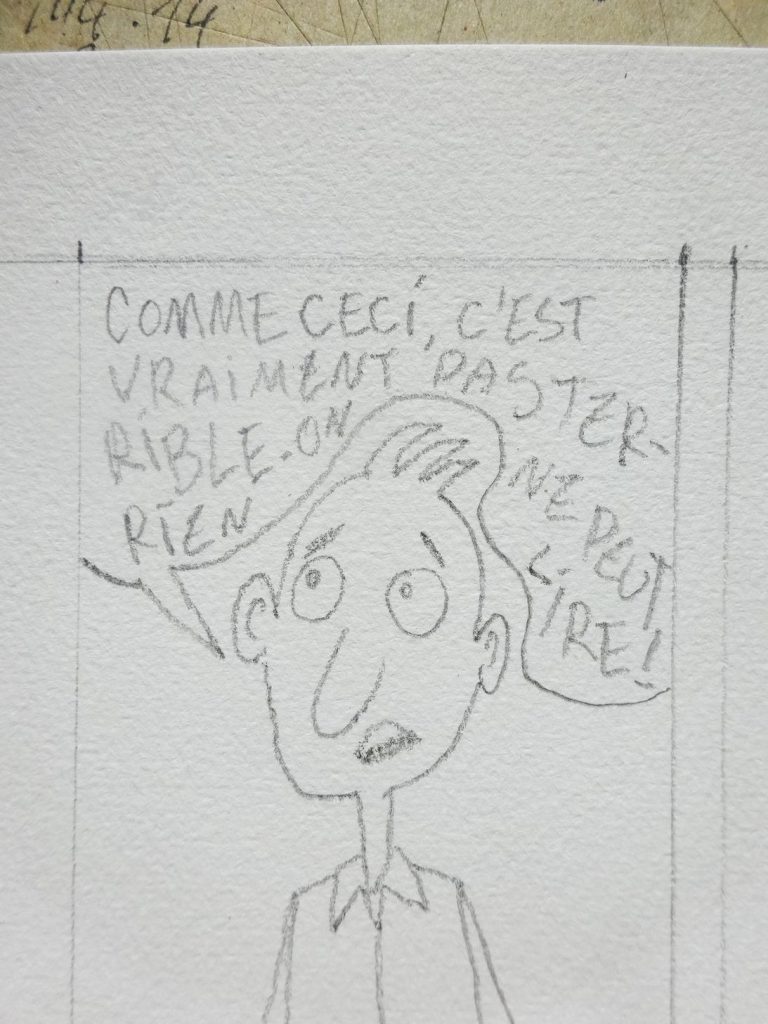 COMME CECI, C'EST
VRAIMENT PAS TER-
RIBLE. ON NE PEUT
RIEN LIRE!